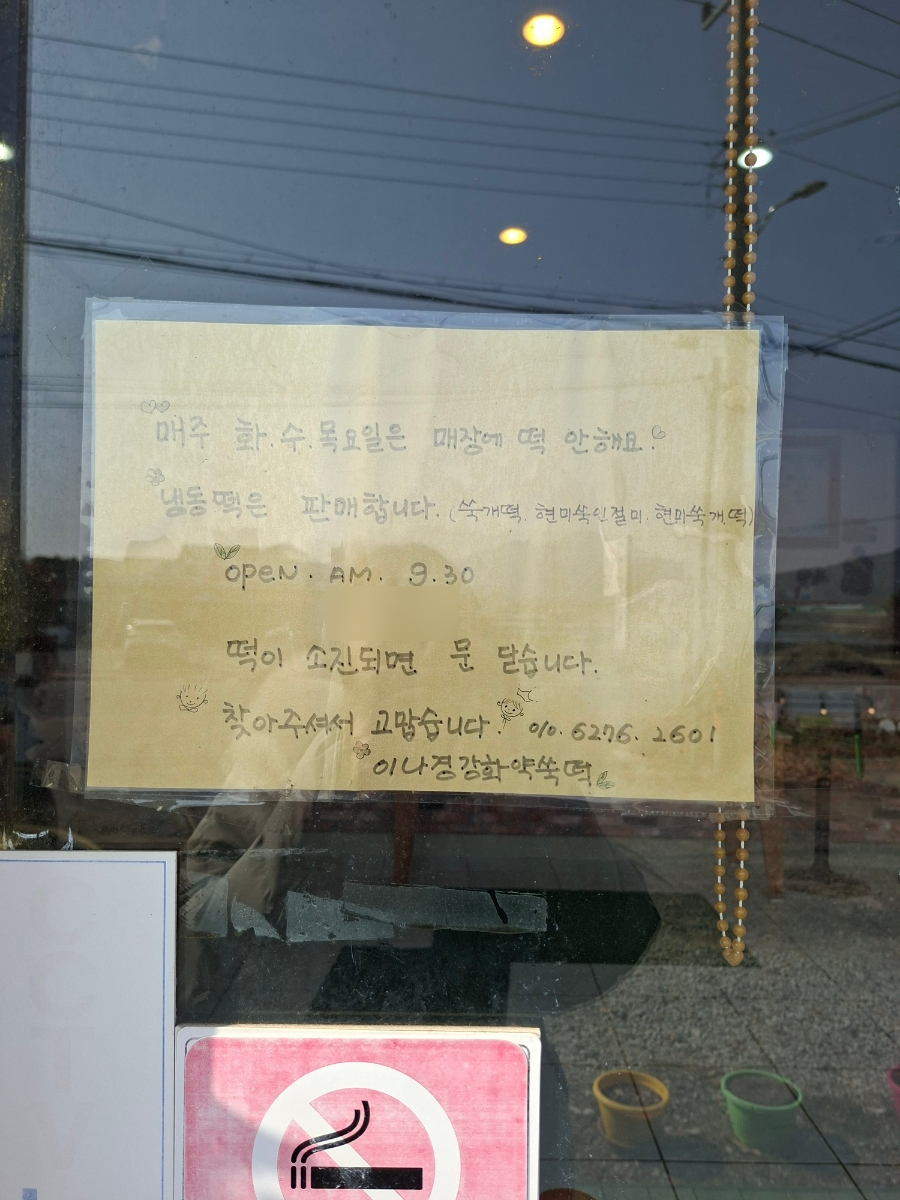 매주 화.수.목요일은 매장에 떡 안해요.
냉동떡은 판매합니다. (쑥개떡. 현미쑥인절미. 현미쑥개떡)
open. AM. 9.30
떡이 소진되면 문 닫습니다.
찾아주셔서 고맙습니다. 010. 6276. 2601
이나경강화약쑥떡